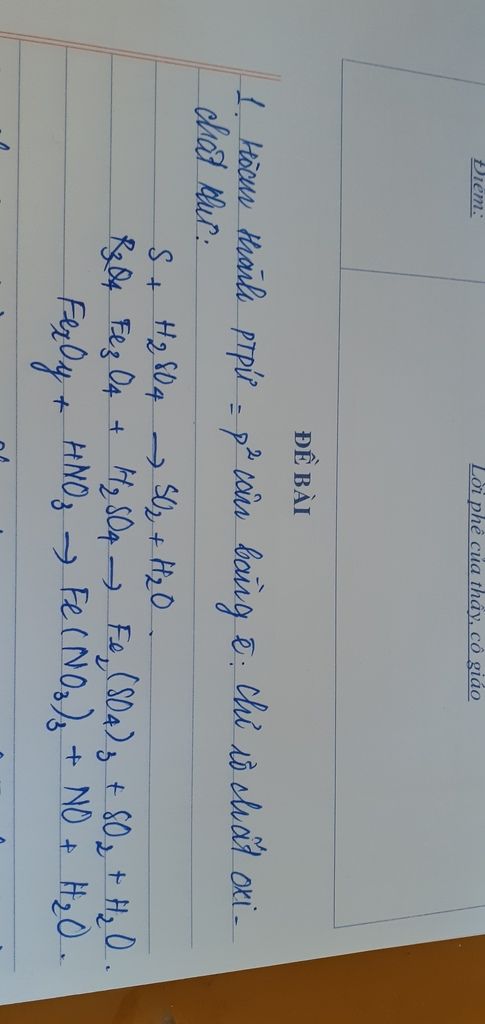 Điểm:
Lời phê của thầy, cô giáo
ĐỀ BÀI
1. Hoàn thành PTPứ = p² cân bằng ē: chỉ rõ chất oxi-
chất khử:
S + H₂SO₄ → SO₂ + H₂O.
Fe₃O₄ + H₂SO₄ → Fe₂(SO₄)₃ + SO₂ + H₂O.
FeₓOy + HNO₃ → Fe(NO₃)₃ + NO + H₂O.